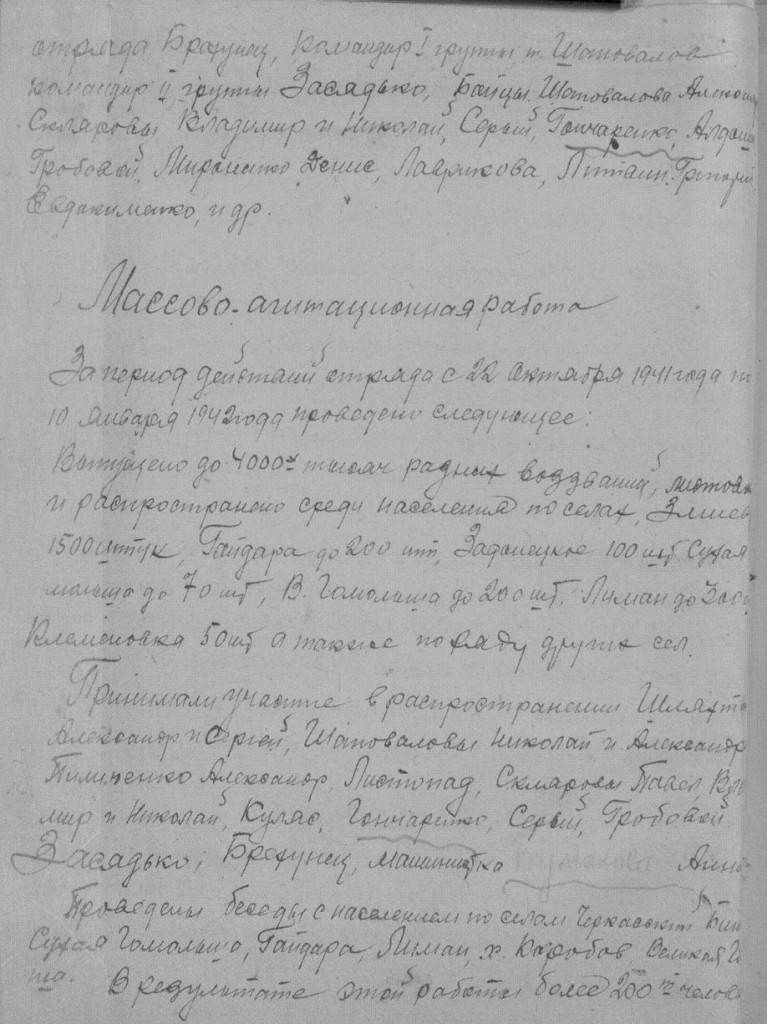 отряда Брехунец, командир I группы т. Шаповалов
командир II группы Засядько, Бойцы. Шаповалова
Скляровы Владимир и Николай, Серый, Гончаренко,
Гробовой, Мироненко Денис, Лаврикова, Григорий
Евдокименко, и др.
Массово-агитационная работа
За период действий отряда с 22 октября 1941 года
10 января 1942 года проведено следующее:
Выпущено до 4000х тысяч разных воззваний,
и распространено среди населения по селах,
1500 штук, Гайдара до 200 шт, Задонецкое 100 шт Сухая
мольша до 70 шт, В. Гомольша до 200 шт. Лиман до
Клеменовка 50 шт а также по ряду других сел.
Принимали участие в распространении
Александр и Сергей, Шаповаловы Николай и Александр
Пилипенко Александр, Листопад, Скляровы Павел
мир и Николай, Куляс, Гончаренко, Серый, Гробовой
Засядько, Брехунец, машинистка
Проведены беседы с населением по селам Черкасский
Сухая Гомольша, Гайдара, Лиман, х. Коробов, Великая
ша. В результате этой работы более 200